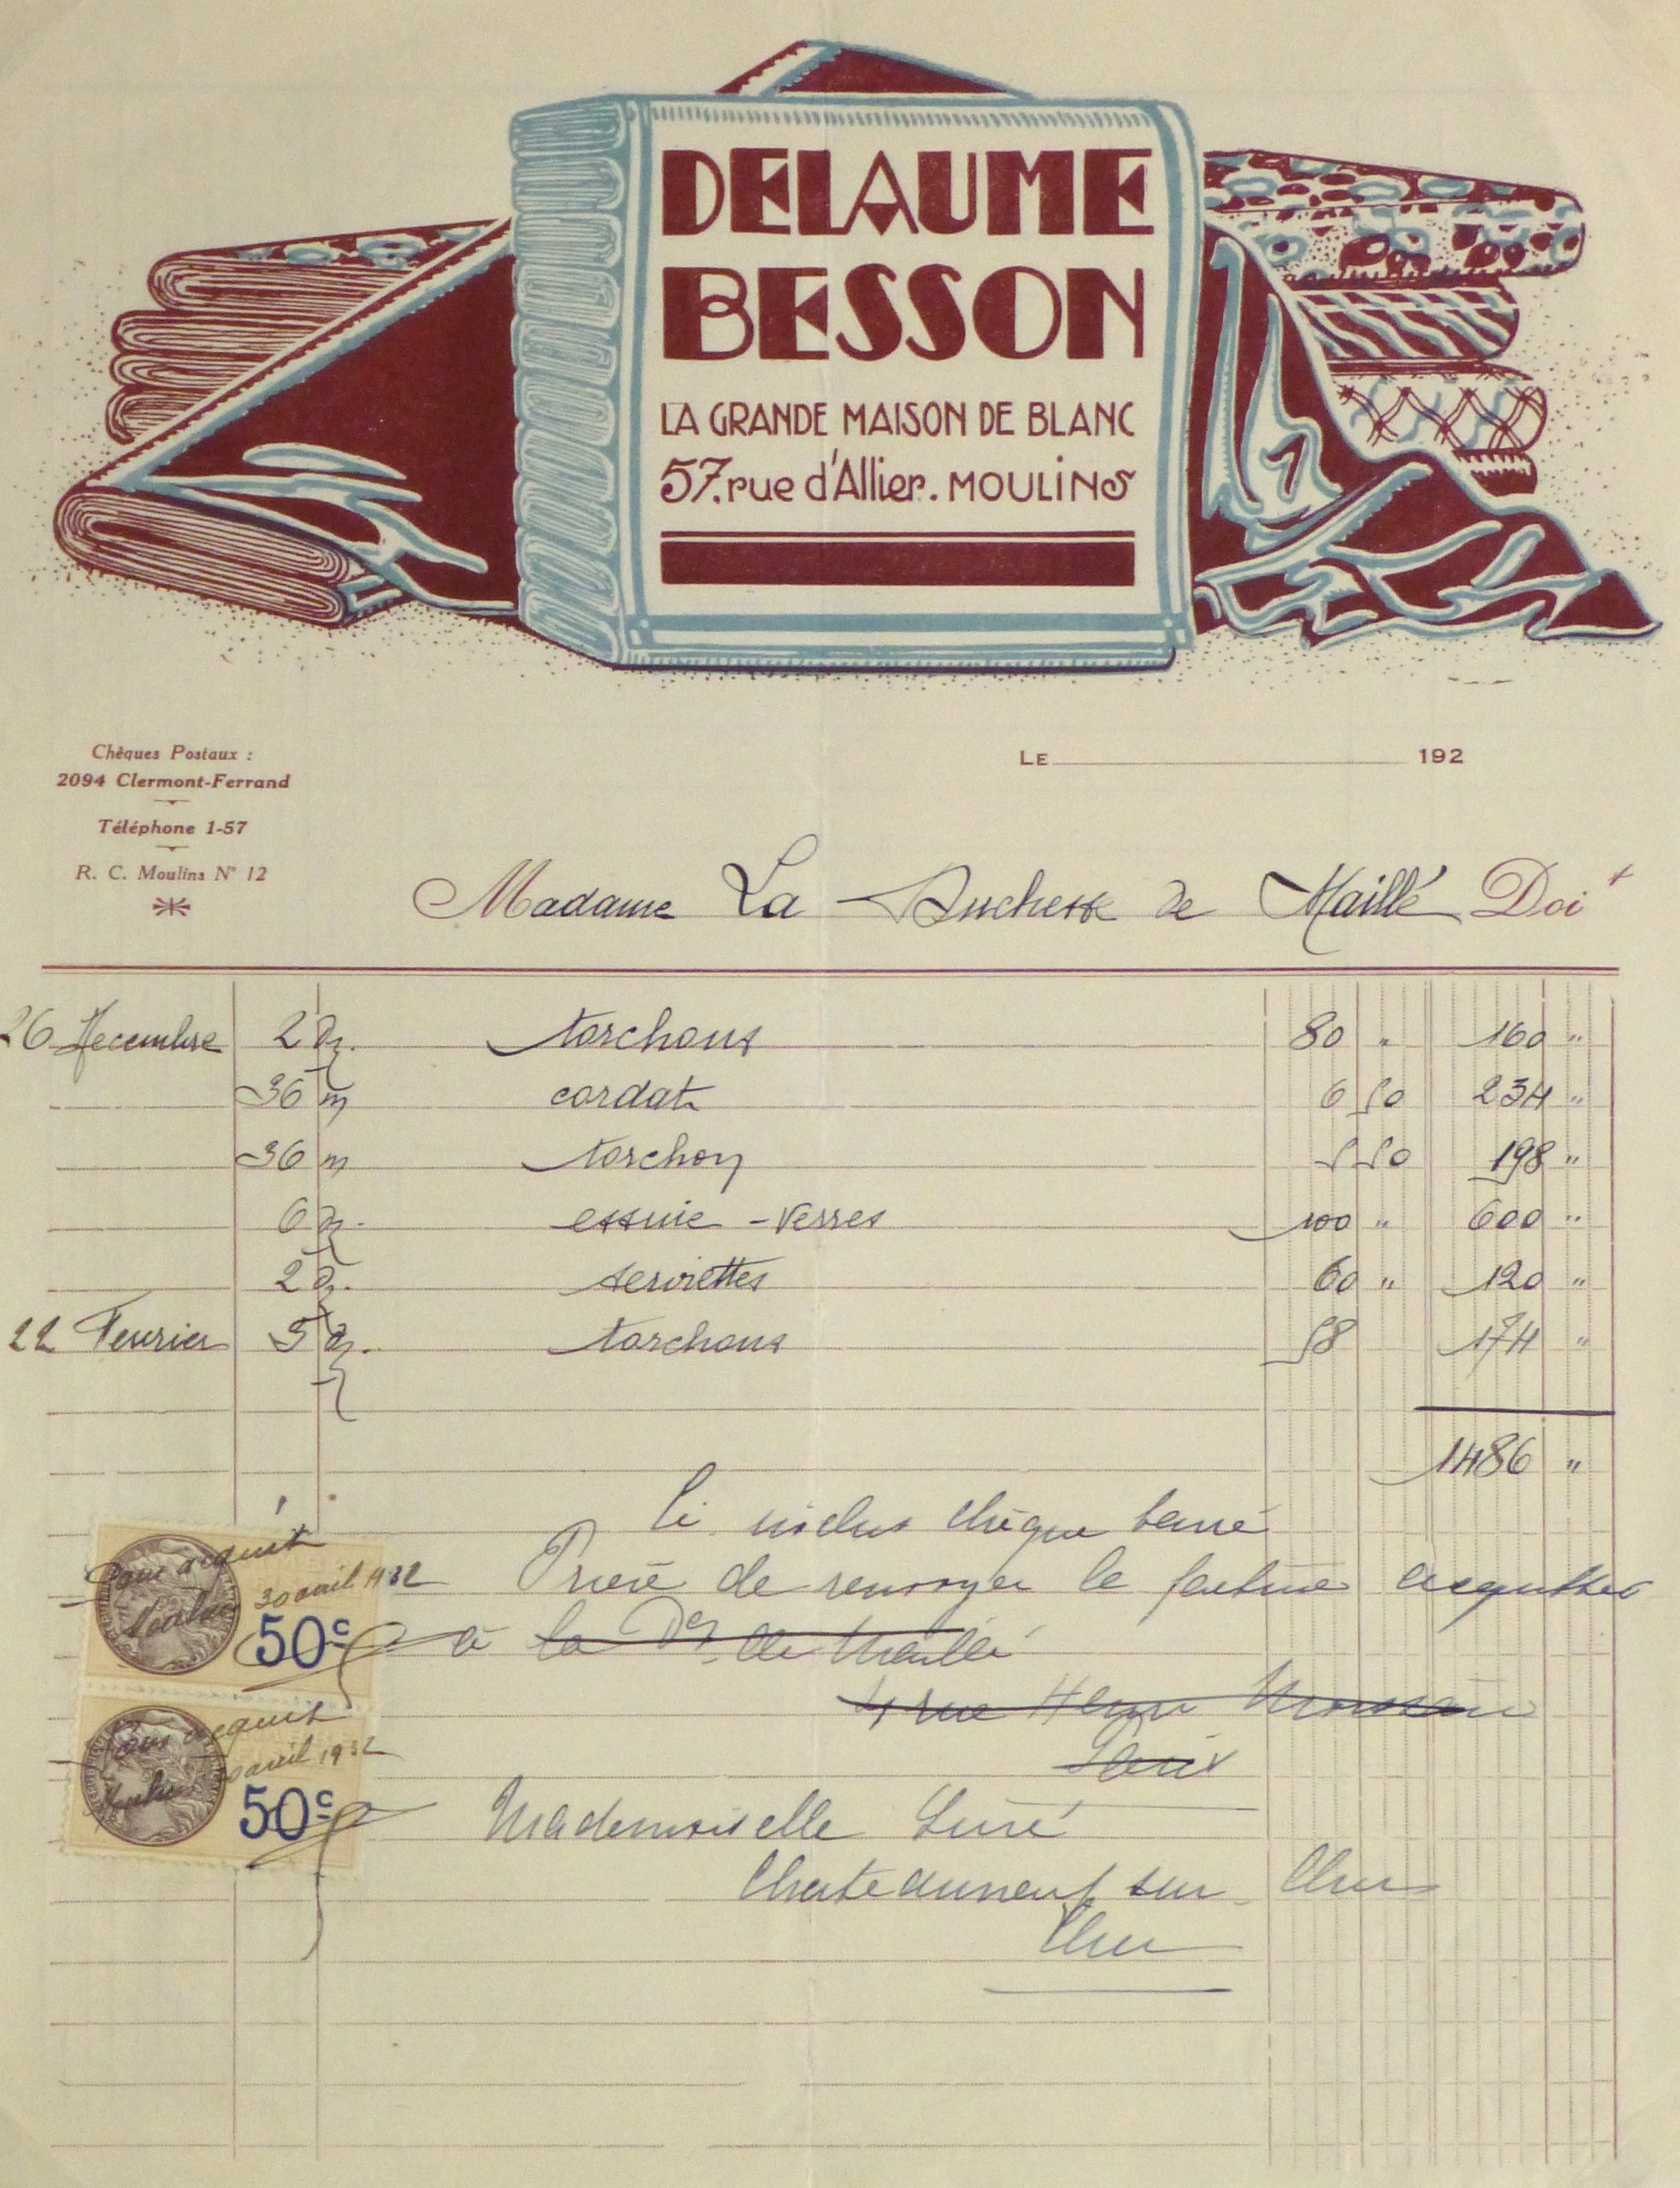 DELAUME
BESSON
LA GRANDE MAISON DE BLANC
57. rue d'Allier. MOULINS
Chèques Postaux :
2094 Clermont-Ferrand
Téléphone 1-57
R. C. Moulins N° 12
LE 192
Madame La Duchesse de Maillé Doit
26 Decembre 2 dz. torchons 80 " 160 "
36 m cordat 6 50 234 "
36 m torchon 5 50 198 "
6 dz. essuie-verres 100 " 600 "
2 dz. serviettes 60 " 120 "
22 Fevrier 3 dz. torchons 58 174 "
1486 "
Ci inclus chèque barré
Prière de renvoyer la facture acquittée
à la Dsse de Maillé
4 rue Henri
Paris
Mademoiselle
Chateauneuf sur Cher
Cher
Pour acquit
30 avril 1932
50c
Pour acquit
30 avril 1932
50c